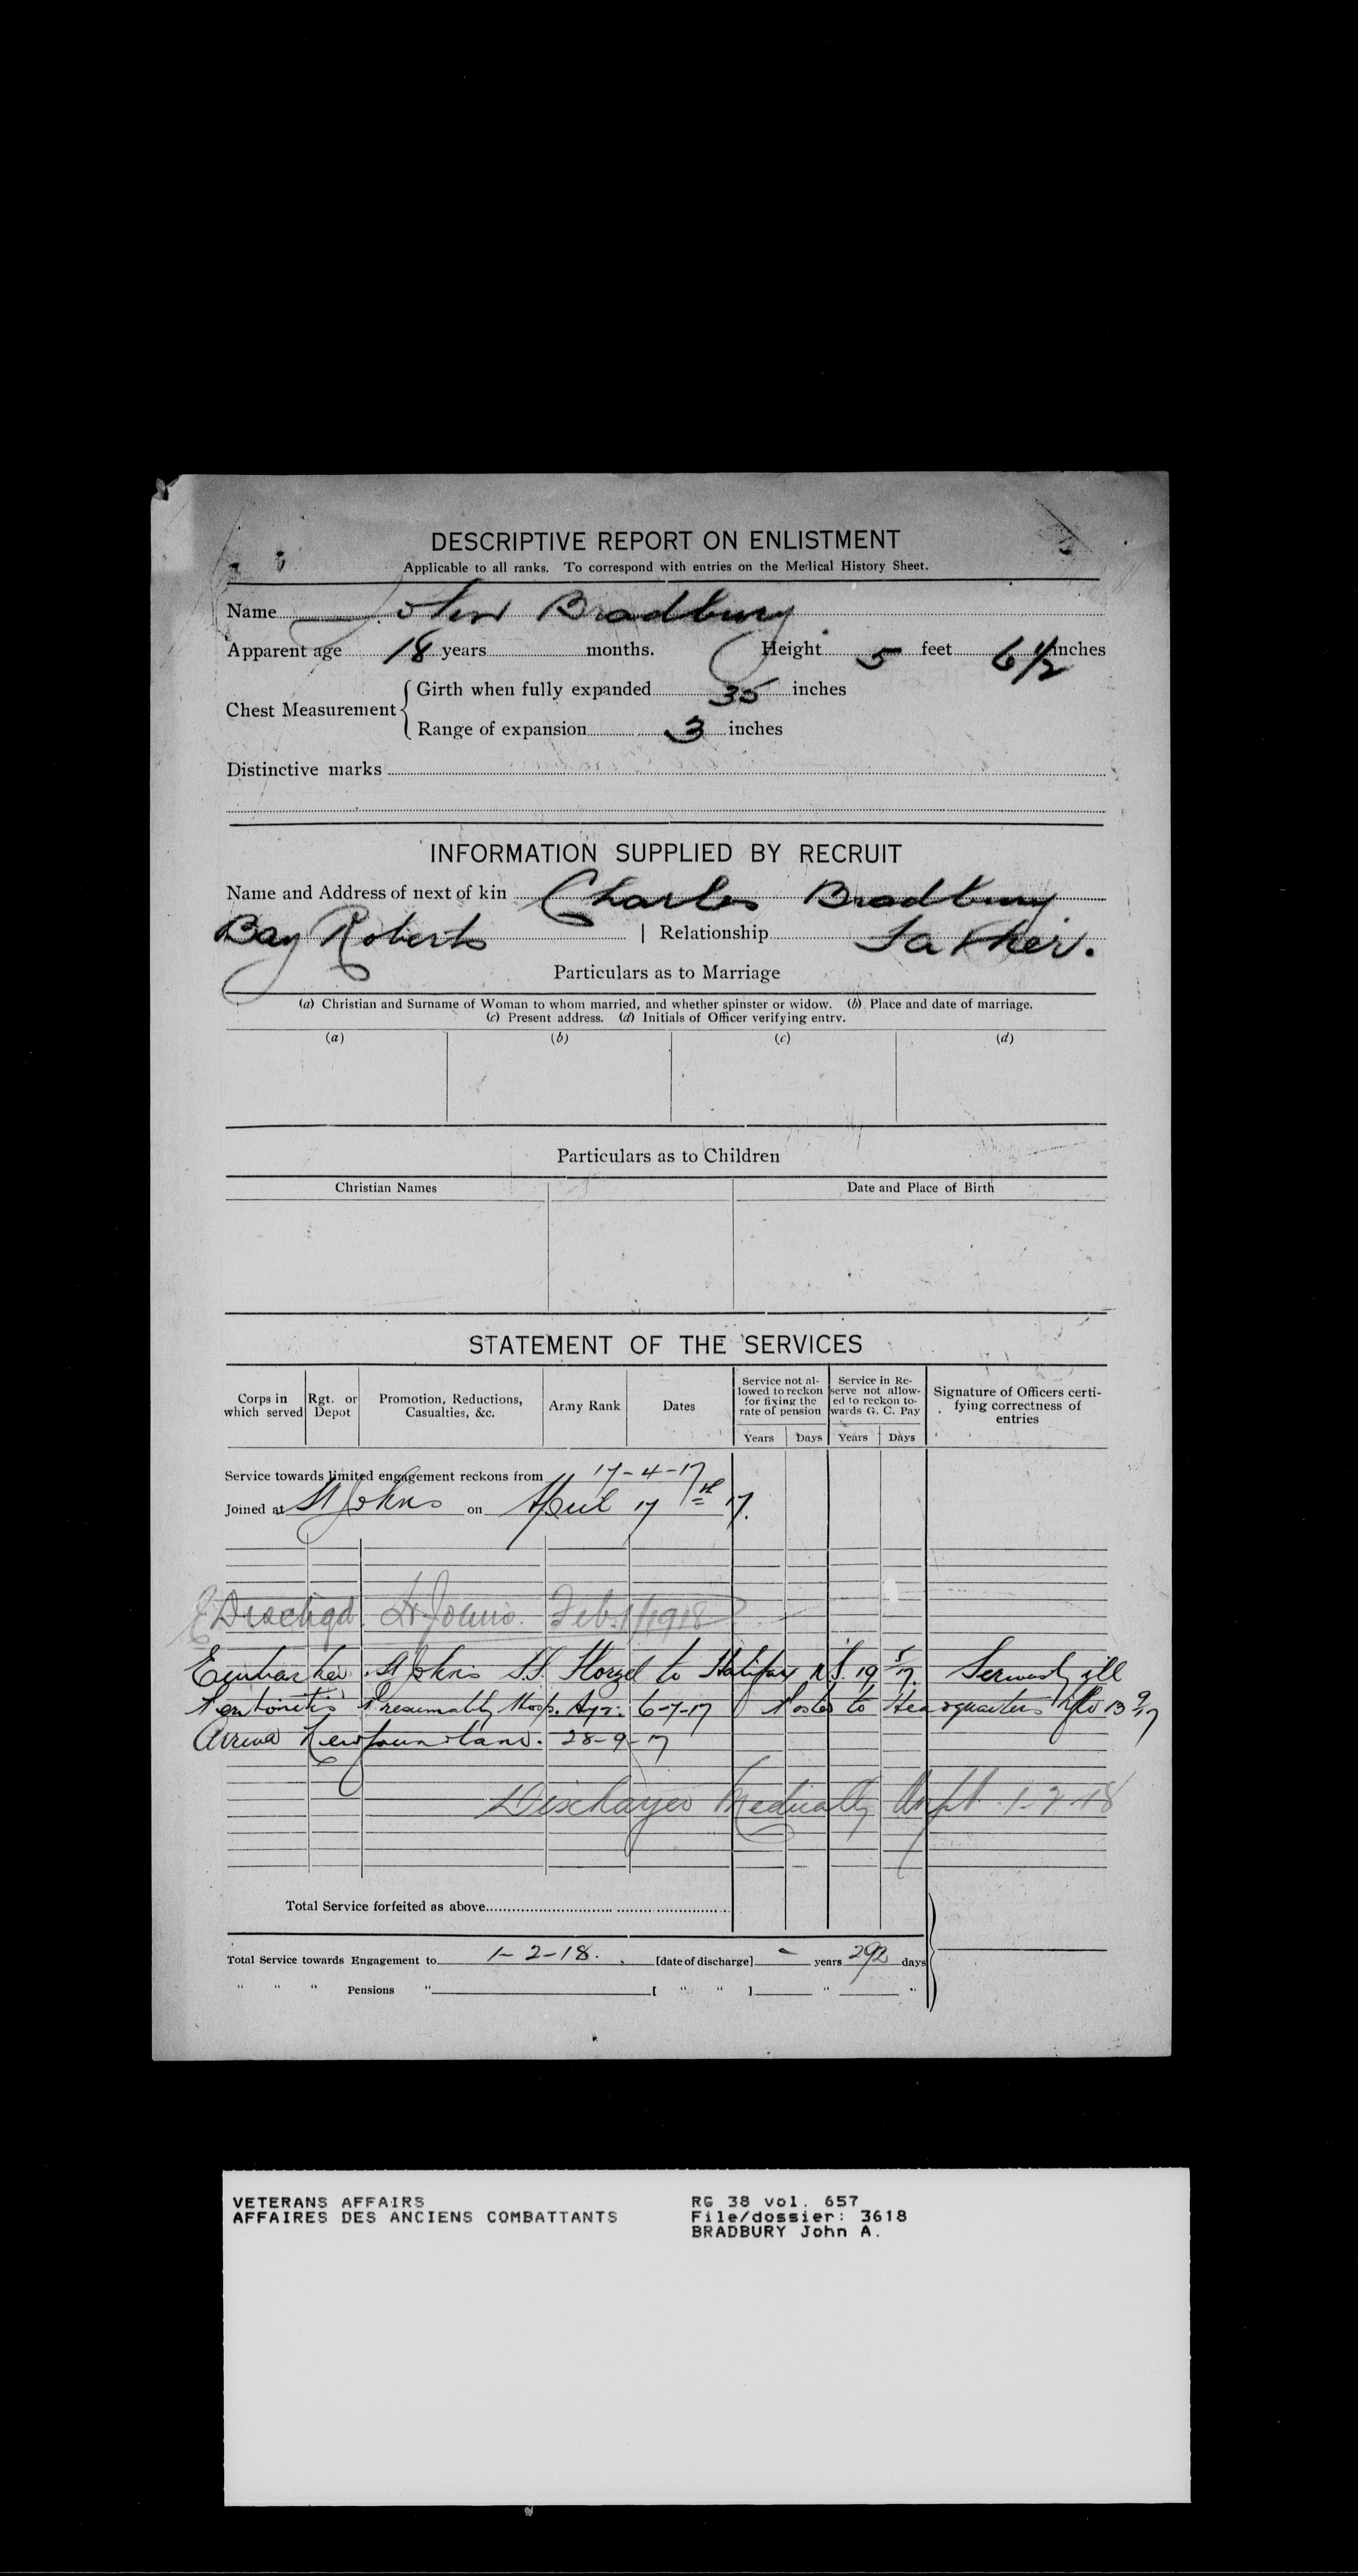 DESCRIPTIVE REPORT ON ENLISTMENT
Applicable to all ranks. To correspond with entries on the Medical History Sheet.
Name John Bradbury
Apparent age 18 years months. Height 5 feet 6 1/2 inches
Chest Measurement { Girth when fully expanded 35 inches
Range of expansion 3 inches
Distinctive marks
INFORMATION SUPPLIED BY RECRUIT
Name and Address of next of kin Charles Bradbury
Bay Roberts | Relationship Father.
Particulars as to Marriage
(a) Christian and Surname of Woman to whom married, and whether spinster or widow. (b) Place and date of marriage.
(c) Present address. (d) Initials of Officer verifying entry.
(a) (b) (c) (d)
Particulars as to Children
Christian Names Date and Place of Birth
STATEMENT OF THE SERVICES
Corps in which served Rgt. or Depot Promotion, Reductions, Casualties, &c. Army Rank Dates Service not allowed to reckon for fixing the rate of pension Service in Reserve not allowed to reckon towards G. C. Pay Signature of Officers certifying correctness of entries
Years Days Years Days
Service towards limited engagement reckons from 17-4-17
Joined at St Johns on April 17th 17.
Dischgd St Johns. Feb. 1/1918
Embarked St Johns S.S. Florizel to Halifax N.S. 19 5/17. Seriously ill
Peritonitis Presumably Hosp. Ayr: 6-7-17 Posted to Headquarters Nfld 13 9/17
Arrived Newfoundland. 28-9-17
Discharged Medically Unfit 1-2-18
Total Service forfeited as above
Total Service towards Engagement to 1-2-18. [date of discharge] - years 292 days
" " " Pensions " [ " " ] " "
VETERANS AFFAIRS RG 38 vol. 657
AFFAIRES DES ANCIENS COMBATTANTS File/dossier: 3618
BRADBURY John A.